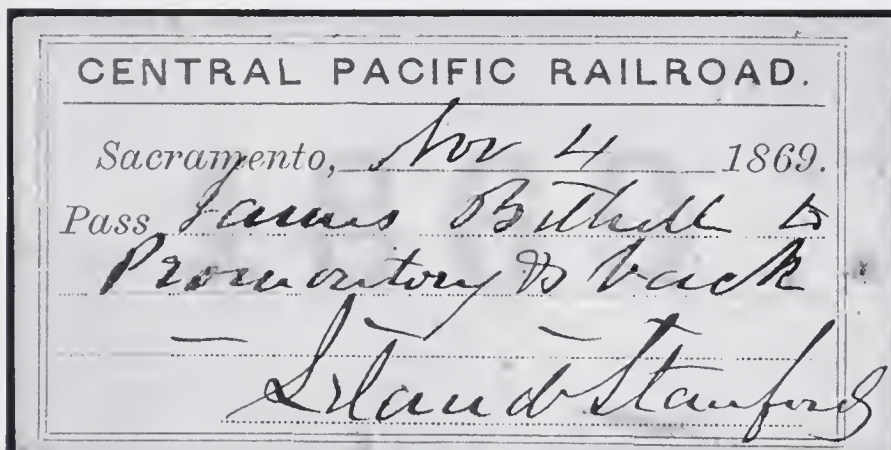 CENTRAL PACIFIC RAILROAD.
Sacramento, Nov 4 1869.
Pass James Bithell to
Promontory & back
Leland Stanford